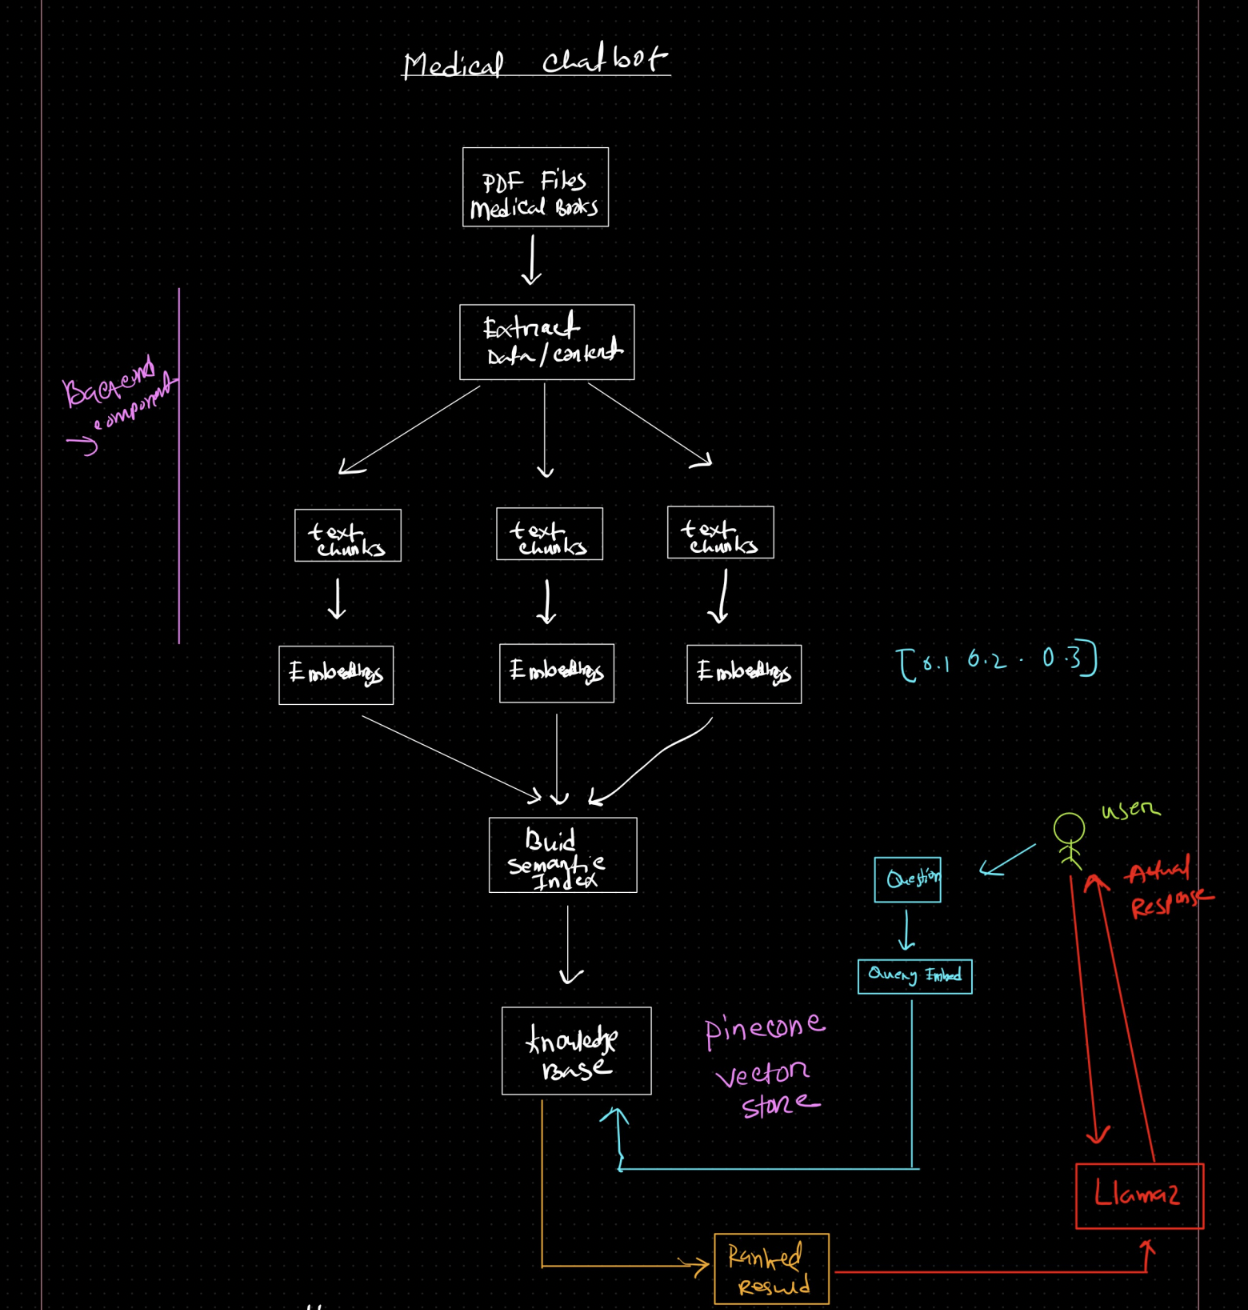 Medical Chatbot
PDF Files
Medical Books
Extract
Data/content
Backend
component
text
chunks
text
chunks
text
chunks
Embeddings
Embeddings
Embeddings
[0.1 0.2 . 0.3]
Buid
Semantic
Index
user
Question
Actual
Response
Query Embed
Knowledge
Base
Pinecone
vector
store
Llama2
Ranked
Resuld